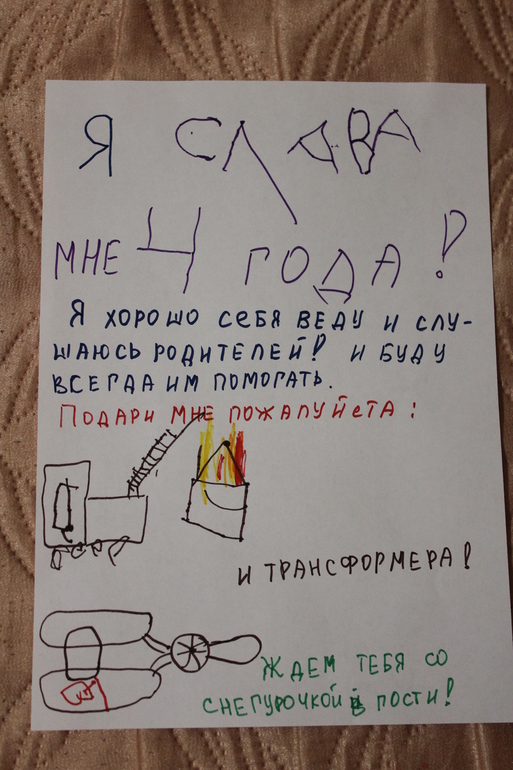 Я СЛАВА
МНЕ 4 ГОДА!
Я ХОРОШО СЕБЯ ВЕДУ И СЛУ-
ШАЮСЬ РОДИТЕЛЕЙ! И БУДУ
ВСЕГДА ИМ ПОМОГАТЬ.
ПОДАРИ МНЕ ПОЖАЛУЙСТА:
И ТРАНСФОРМЕРА!
ЖДЕМ ТЕБЯ СО
СНЕГУРОЧКОЙ В ГОСТИ!